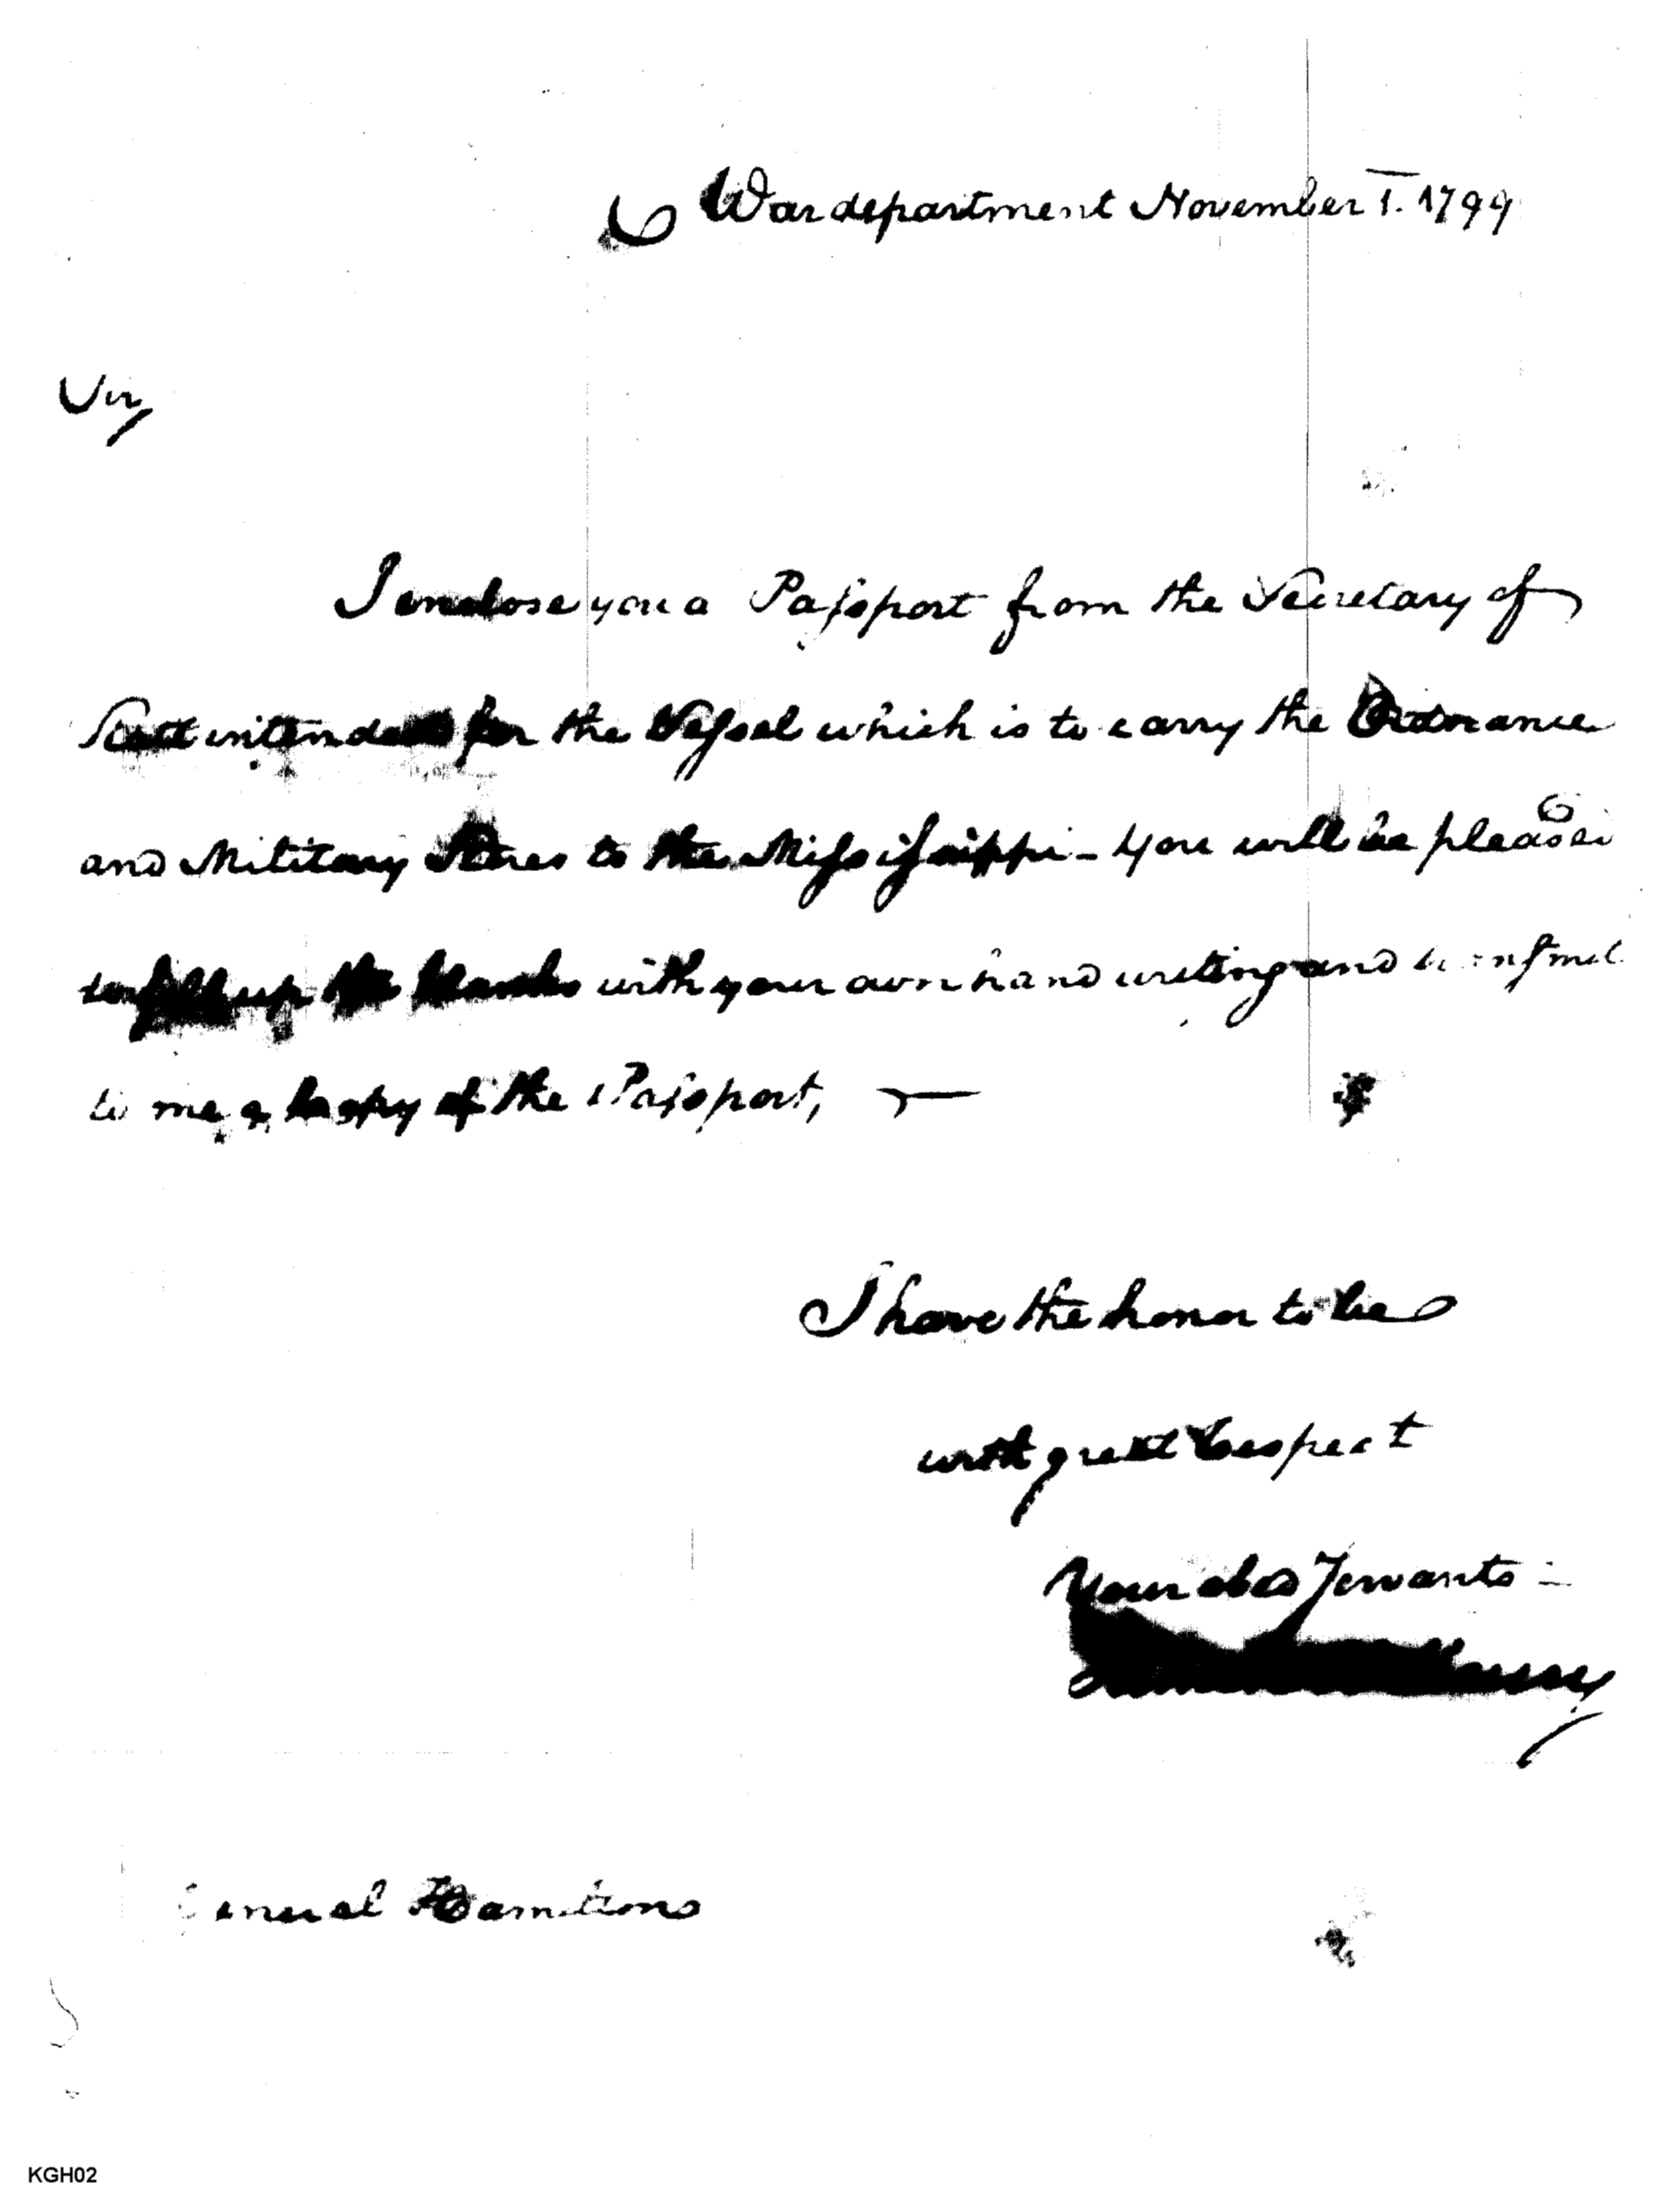 War department November 1. 1799
Sir,
I enclose you a Passport from the Secretary of
State intended for the Vessel which is to carry the Ordnance
and Military Stores to the Mississippi - You will be pleased
to fill up the blanks with your own hand writing and transmit
to me a copy of the Passport,
I have the honor to be
with great respect
Your obd Servants
General Hamilton
KGH02